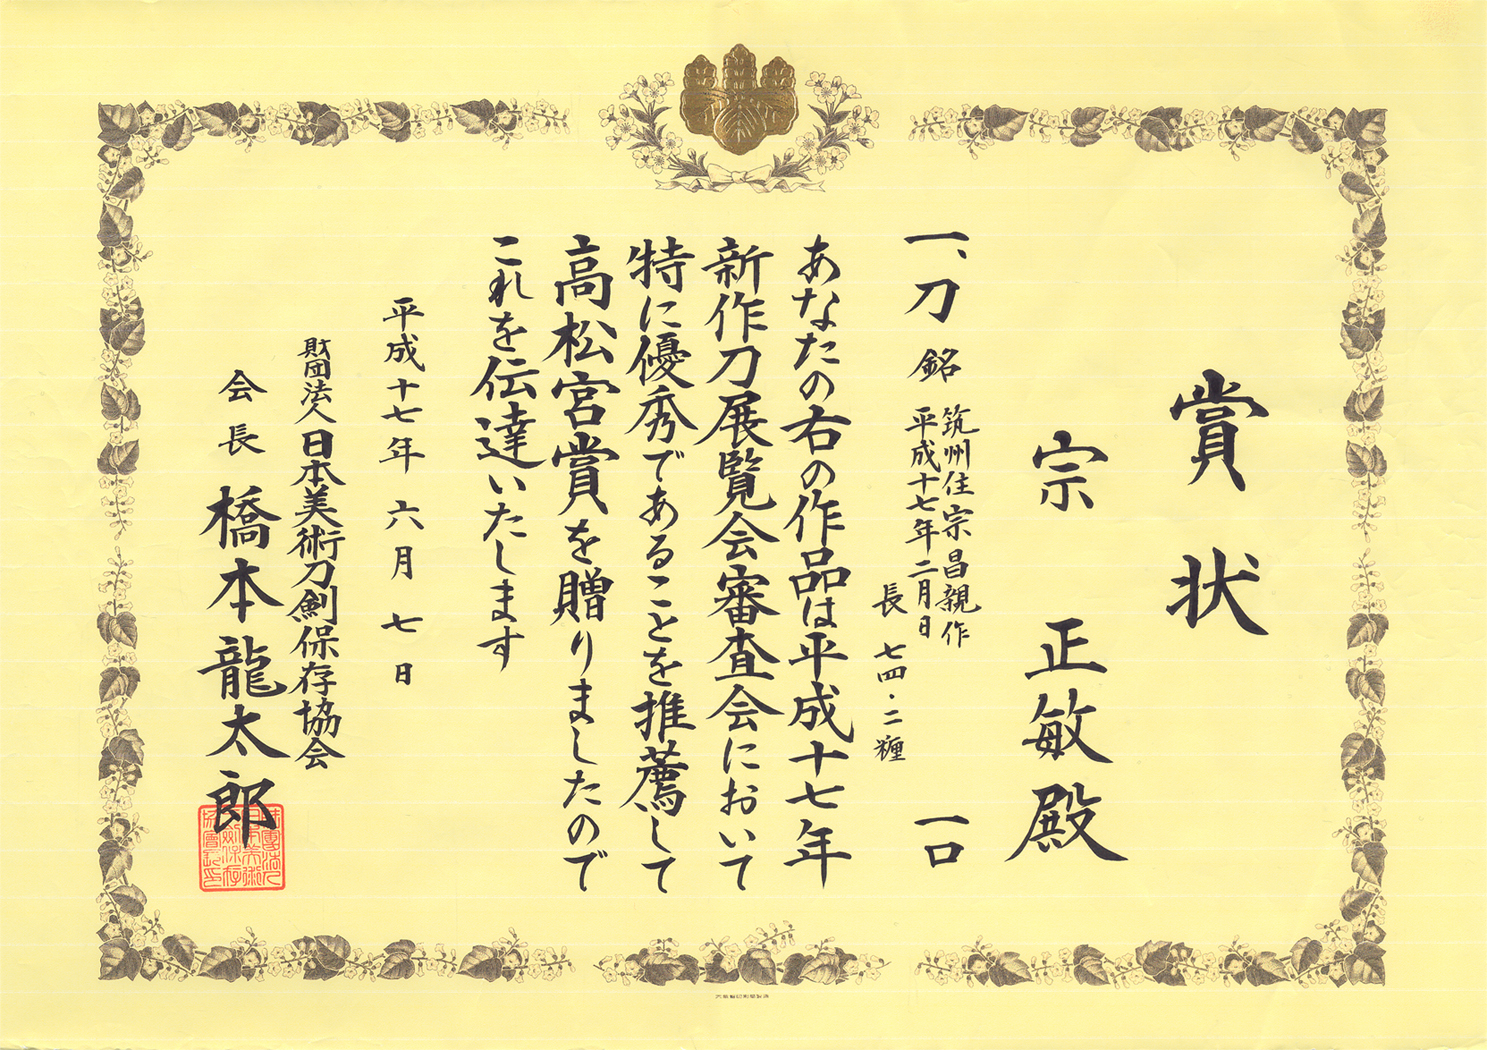 賞状
宗正敏殿
一、刀 銘 筑州住宗昌親作 一口
平成十七年二月日
長 七四・二糎
あなたの右の作品は平成十七年
新作刀展覧会審査会において
特に優秀であることを推薦して
高松宮賞を贈りましたので
これを伝達いたします
平成十七年六月七日
財団法人日本美術刀剣保存協会
会長 橋本龍太郎